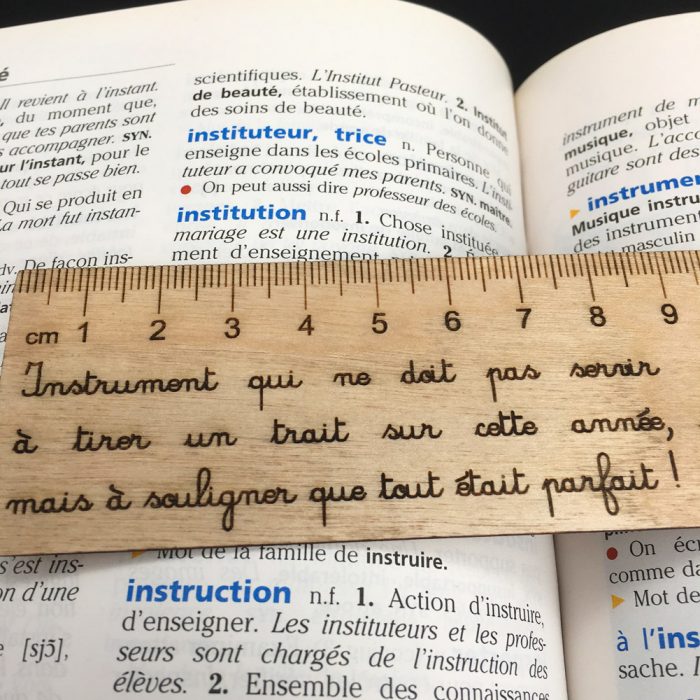 é
Il revient à l'instant.
du moment que,
que tes parents sont
accompagner. SYN.
ur l'instant, pour le
tout se passe bien.
Qui se produit en
La mort fut instan-
dv. De façon ins-
scientifiques. L'Institut Pasteur. 2. Institut
de beauté, établissement où l'on donne
des soins de beauté.
instituteur, trice n. Personne qui
enseigne dans les écoles primaires. L'insti-
tuteur a convoqué mes parents. SYN. maître.
● On peut aussi dire professeur des écoles.
institution n.f. 1. Chose instituée.
mariage est une institution. 2.
ment d'enseignement
instrument de m
musique, objet
musique. L'acc
guitare sont des
▸ instrumen
Musique instru
des instrument
masculin
cm 1 2 3 4 5 6 7 8 9
Instrument qui ne doit pas servir
à tirer un trait sur cette année,
mais à souligner que tout était parfait !
s'est ins-
on d'une
[sjɔ̃],
▸ Mot de la famille de instruire.
instruction n.f. 1. Action d'instruire,
d'enseigner. Les instituteurs et les profes-
seurs sont chargés de l'instruction des
élèves. 2. Ensemble des connaissances
● On écr
comme da
▸ Mot de
à l'ins
sache.